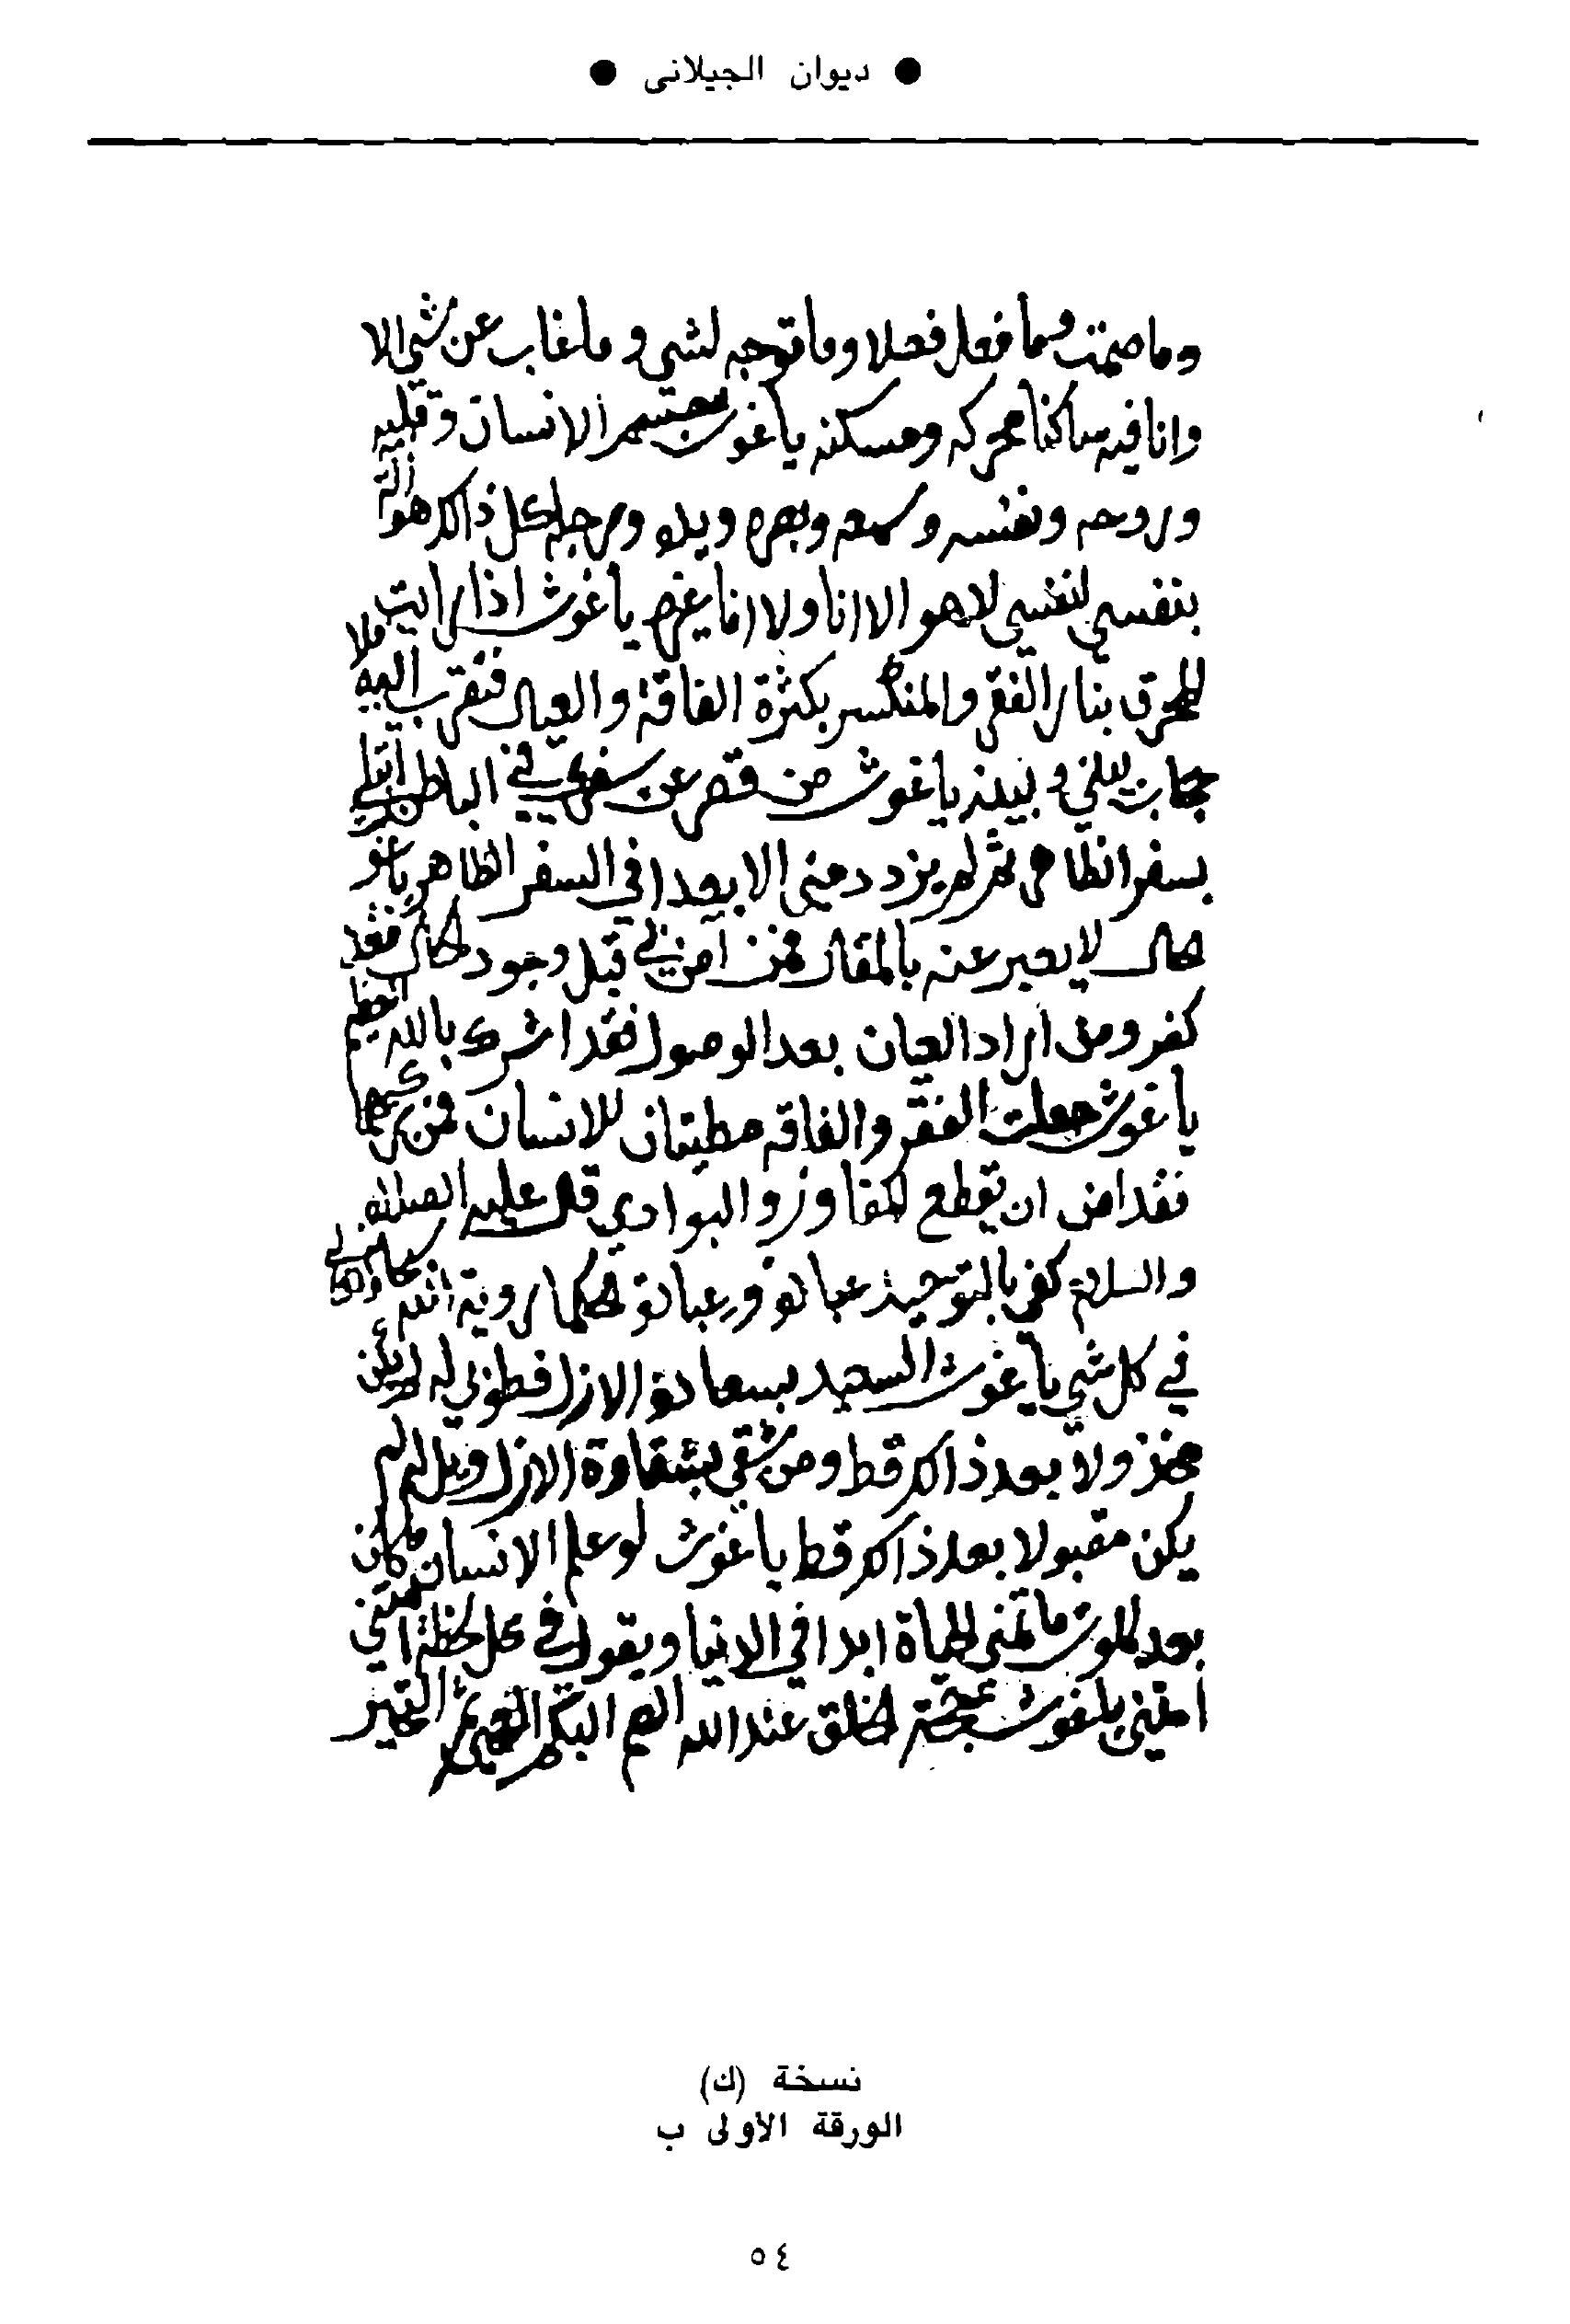 ● ديوان الجيلانى ●
وما صمت وما فعل فعلا وما توجه لشي وما غاب عن شي الا
وانا فيه ساكنا محركه ومسكنه ياغوث جسم الانسان وقلبه
وروحه ونفسه وسمعه وبصره ويده ورجله كل ذالك هو الله
بنفسي لنفسي لا هو الا انا ولا انا غيره ياغوث اذا رايت
المحرق بنار الفقر والمنكسر بكثرة الفاقة والعيال فتقرب اليه فلا
حجاب بيني وبينه ياغوث من قصر عن سفري في الباطن ابتلي
بسفر الظاهر ثم لم يزدد مني الا بعدا في السفر الظاهر ياغو
حال لا يعبر عنه بالمقال فمن آمن بي قبل وجود الحال فقد
كفر ومن اراد العيان بعد الوصول فقد اشرك بالله العظيم
ياغوث جعلت الفقر والفاقه مطيتان للانسان فمن ركبها
فقد امن ان تقطع المفاوز والبوادي قال عليه الصلاة
والسلام كفى بالتوحيد عبادة وعبادة الحكما روية الله
في كل شي ياغوث السعيد بسعادة الازل فطوبي له لم يكن
ولا بعد ذالك قط ومن شقي بشقاوة الازل ويل له لم
يكن مقبولا بعد ذالك قط ياغوث لو علم الانسان ما كان
بعد الموت ما تمنى الحياة ابدا في الدنيا ويقول في كل لحظة امتني
امتني ياغوث حجة الخلق عند الله الصم البكم العمي ثم التحير
نسخة (ك)
الورقة الأولى ب
٥٤